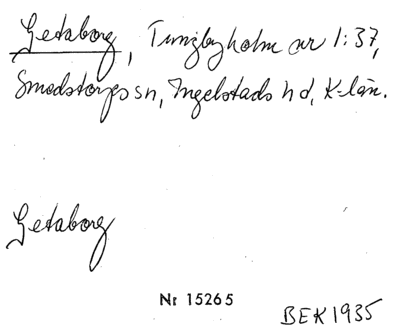 Getaborg, Tunbyholm nr 1:37,
Smedstorps sn, Ingelstads hd, K-län.
Getaborg
Nr 15265
BEK 1935